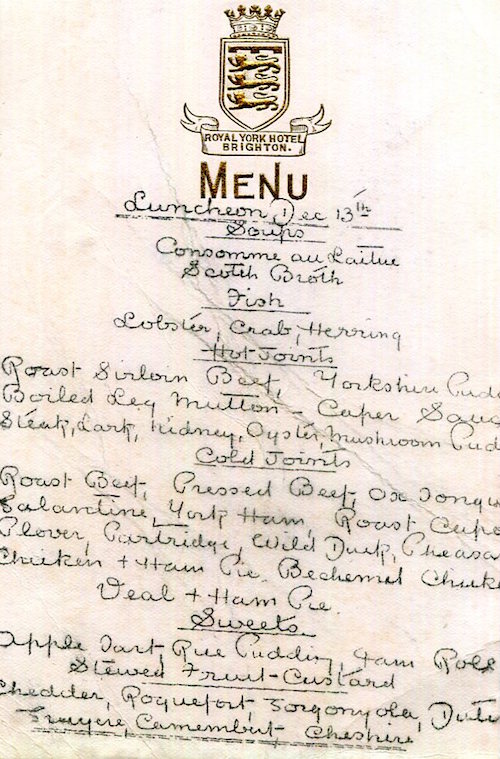 ROYAL YORK HOTEL
BRIGHTON.
MENU
Luncheon, Dec 13th
Soups
Consomme au Laitue
Scotch Broth
Fish
Lobster, Crab, Herring
Hot Joints
Roast Sirloin Beef, Yorkshire Pudd
Boiled Leg Mutton - Caper Sauc
Steak, Lark, Kidney, Oyster, Mushroom Pud
Cold Joints
Roast Beef, Pressed Beef, Ox Tongu
Galantine, York Ham, Roast Capo
Plover, Partridge, Wild Duck, Pheasa
Chicken + Ham Pie. Bechemel Chick
Veal + Ham Pie.
Sweets.
Apple Tart, Rice Pudding, Jam Roll
Stewed Fruit-Custard
Chedder, Roquefort, Gorgonyola, Dut
Gruyere, Camembert, Cheshire